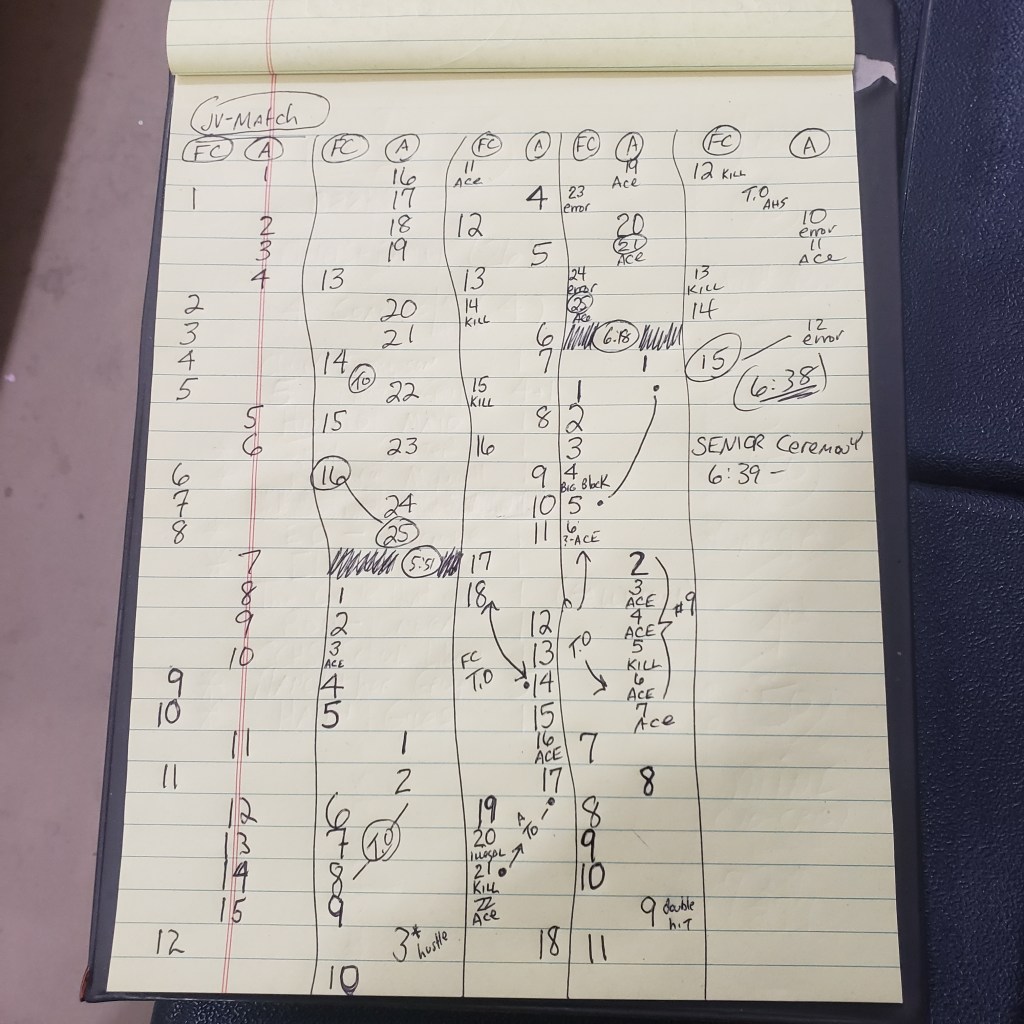 JV-Match
FC A
1
1
2
3
4
2
3
4
5
5
6
6
7
8
7
8
9
10
9
10
11
11
12
13
14
15
12
FC A
16
17
18
19
13
20
21
14
TO
22
15
23
16
24
25
5:51
1
2
3
ACE
4
5
1
2
6
7 T.O
8
9
3* hustle
10
FC A
11
Ace
4
12
5
13
14
KILL
6
7
15
KILL
8
16
9
10
11
17
18
12
13
FC
T.O
14
15
16
ACE
17
19
A
TO
20
illegal
21
KILL
22
Ace
18
FC A
19
Ace
23
error
20
21
ACE
24
error
25
Ace
6:18
1
1
2
3
4
BIG Block
5
6
?-ACE
2
3
ACE
4
ACE
#9
T.O
5
KILL
6
ACE
7
Ace
7
8
8
9
10
9 double
hit
11
FC A
12 KILL
T.O
AHS
10
error
11
ACE
13
KILL
14
12
error
15
6:38
SENIOR Ceremony
6:39 -